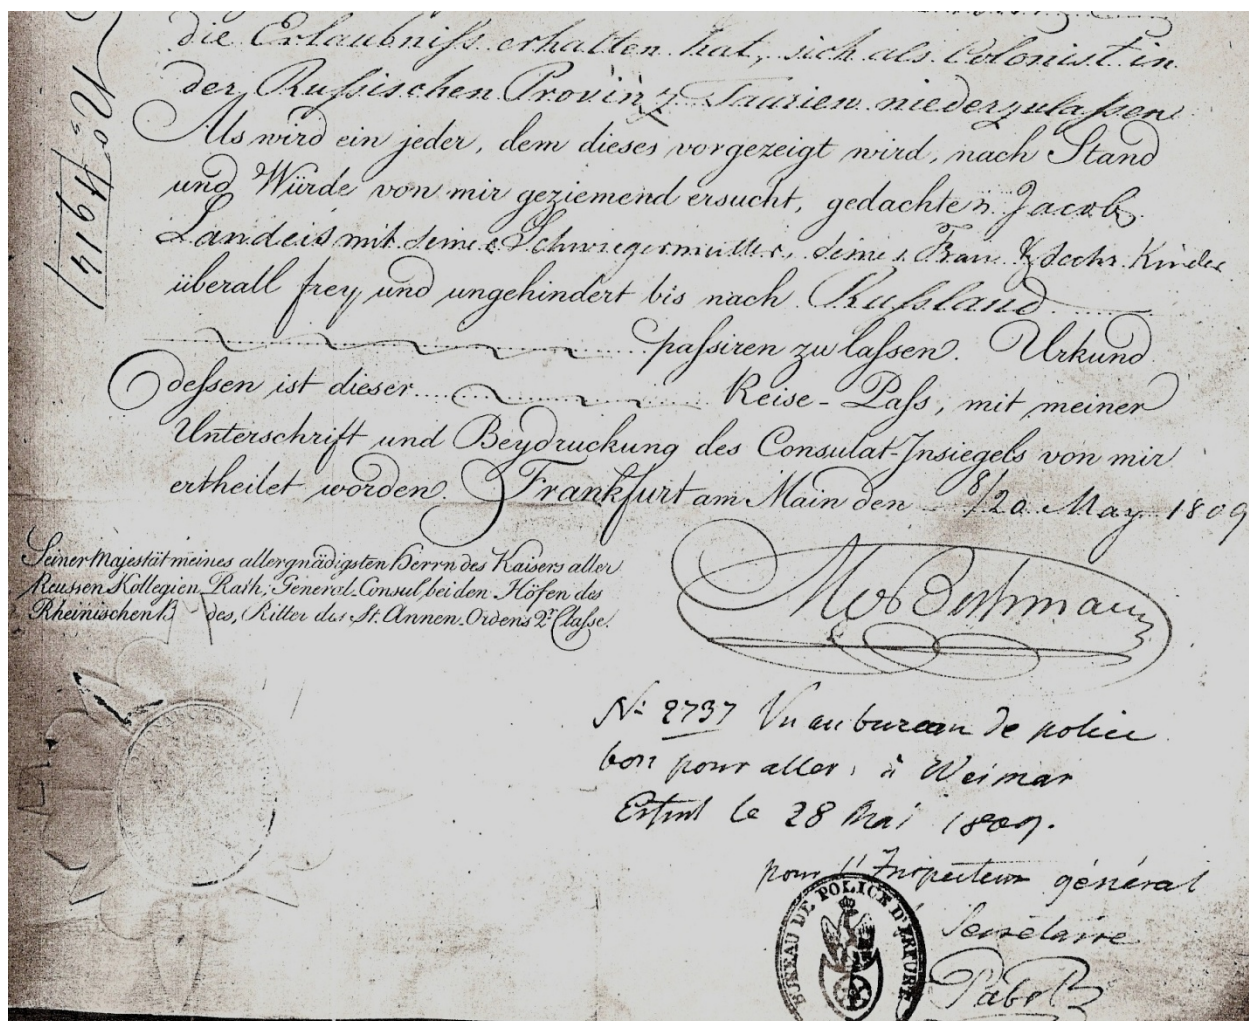 die Erlaubniß erhalten hat, sich als Colonist in
der Rußischen Provinz Taurien niederzulaßen
Als wird ein jeder, dem dieses vorgezeigt wird, nach Stand
und Würde von mir geziemend ersucht, gedachten Jacob
Landeis mit seiner Schwiegermutter, seiner Frau & sechs Kinder
überall frey und ungehindert bis nach Rußland
paßiren zu laßen. Urkund
deßen ist dieser Reise-Paß, mit meiner
Unterschrift und Beydruckung des Consulat-Insiegels von mir
ertheilet worden. Frankfurt am Main den 8/20 May 1809
Seiner Majestät meines allergnädigsten Herrn des Kaisers aller
Reussen Kollegien-Rath, General-Consul bei den Höfen des
Rheinischen B des, Ritter des St. Annen-Ordens 2r Claße.
No 2737 Vu au bureau de police
bon pour aller à Weimar
Erfurt le 28 Mai 1809.
pour l'Inspecteur général
Secrétaire
BUREAU DE POLICE D'ERFURT